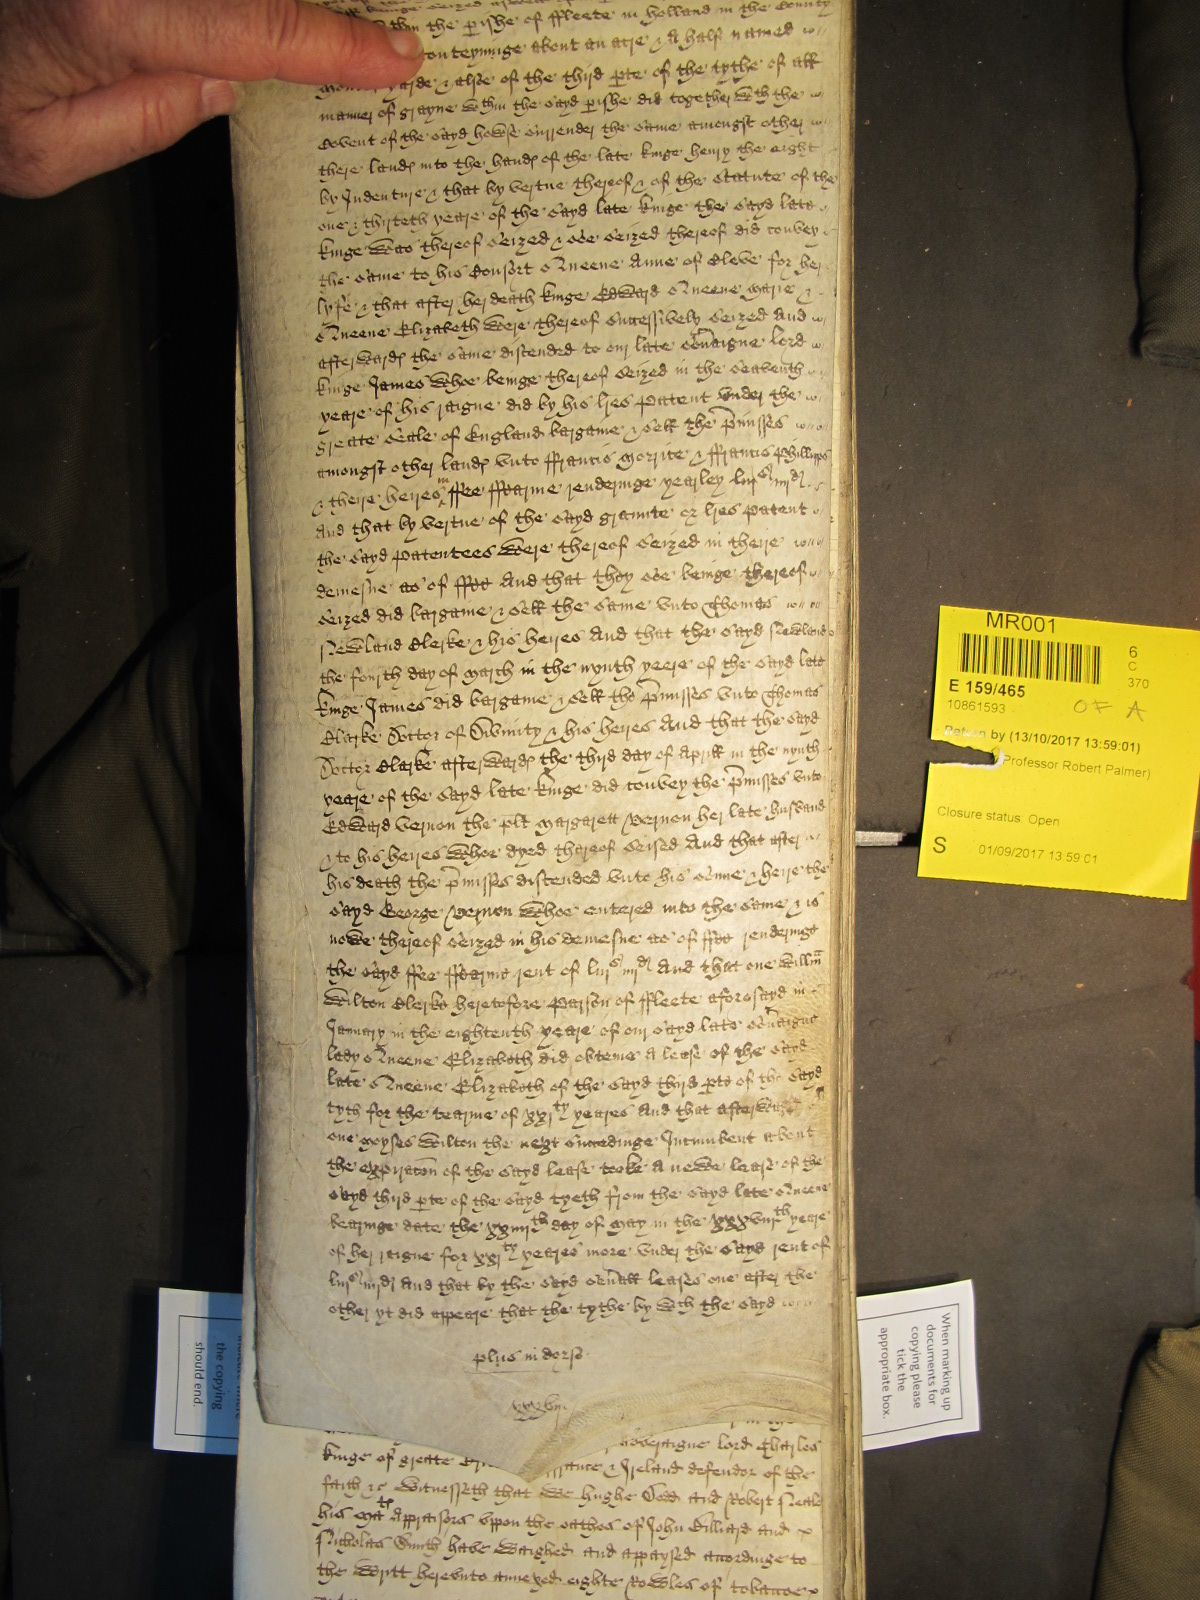 thin the pishe of ffleete in Holland in the County
conteyninge about an acre & a half named
yarde & alsoe of the third pte of the tythe of all
manner of grayne wthin the sayd pishe did together wth the
Covent of the sayd howse surrender the same amongst other
there lands into the hands of the late kinge henry the eight
by Indenture & that by vertue thereof & of the Statute of the
one & thirteth yeare of the sayd late kinge the sayd late
kinge was thereof seized & soe seized thereof did convey
the same to his Consort Queene Anne of Cleve for her
lyfe & that after her death kinge Edward Queene Marie &
Queene Elizabeth were thereof successively seized And
afterwards the same discended to our late sovaigne Lord
kinge James whoe beinge thereof seized in the seaventh
yeare of his raigne did by his lres patent under the
greate seale of England bargaine & sell the pmisses
amongst other lands unto ffrancis Morrice & ffrancis Phillipps
& there heires in ffee ffarme renderinge yearley liiis iiijd
And that by vertue of the sayd graunte or lres patent
the sayd patentees were thereof seized in there
demesne as of ffee And that they soe beinge thereof
seized did bargaine & sell the same unto Thomas
Newland Clerke & his heires And that the sayd Newland
the fourth day of March in the nynth yeere of the sayd late
kinge James did bargaine & sell the pmisses unto Thomas
Clarke Doctor of Divinity & his heires And that the sayd
Doctor Clarke afterwards the third day of Aprill in the nynth
yeare of the sayd late kinge did convey the pmisses unto
Edward Vernon the plt Margarett Vernon her late husband
& to his heires whoe dyed thereof seised And that after
his death the pmisses discended unto his sonne & heire the
sayd George Vernon whoe entered into the same & is
nowe thereof seized in his demesne as of ffee renderinge
the sayd ffee ffarme rent of liiis iiijd And that one Willm
Wilton Clerke heretofore Parson of ffleete aforesayd in
January in the eightenth yeare of our sayd late sovaigne
lady Queene Elizabeth did obteine a lease of the sayd
late Queene Elizabeth of the sayd third pte of the sayd
tyth for the tearme of xxity yeares And that afterwards
one Moyses Wilton the next succedinge Incumbent about
the expiracon of the sayd lease tooke a newe lease of the
sayd third pte of the sayd tyeth from the sayd late Queene
bearinge date the xxiiiith day of May in the xxxviiith yeare
of her raigne for xxity yeares more under the sayd rent of
liiis iiijd And that by the sayd sevall leases one after the
other yt did appeare that the tythe by wth the sayd
plus in dorso
soveraigne lord Charles
kinge of greate ffrance & Ireland defendor of the
faith &c Witnesseth that we hughe Todd and Robert
his mats Appraisors uppon the oathes of John Billiard and
Nicholas Smith have waighed and appaysed accordinge to
the Writt hereunto annexed eighte Rowles of tobaccoe
MR001
6
C
370
E 159/465
10861593
OF A
Return by (13/10/2017 13:59:01)
Professor Robert Palmer)
Closure status: Open
S 01/09/2017 13:59:01
the copying
should end.
When marking up
documents for
copying please
tick the
appropriate box.